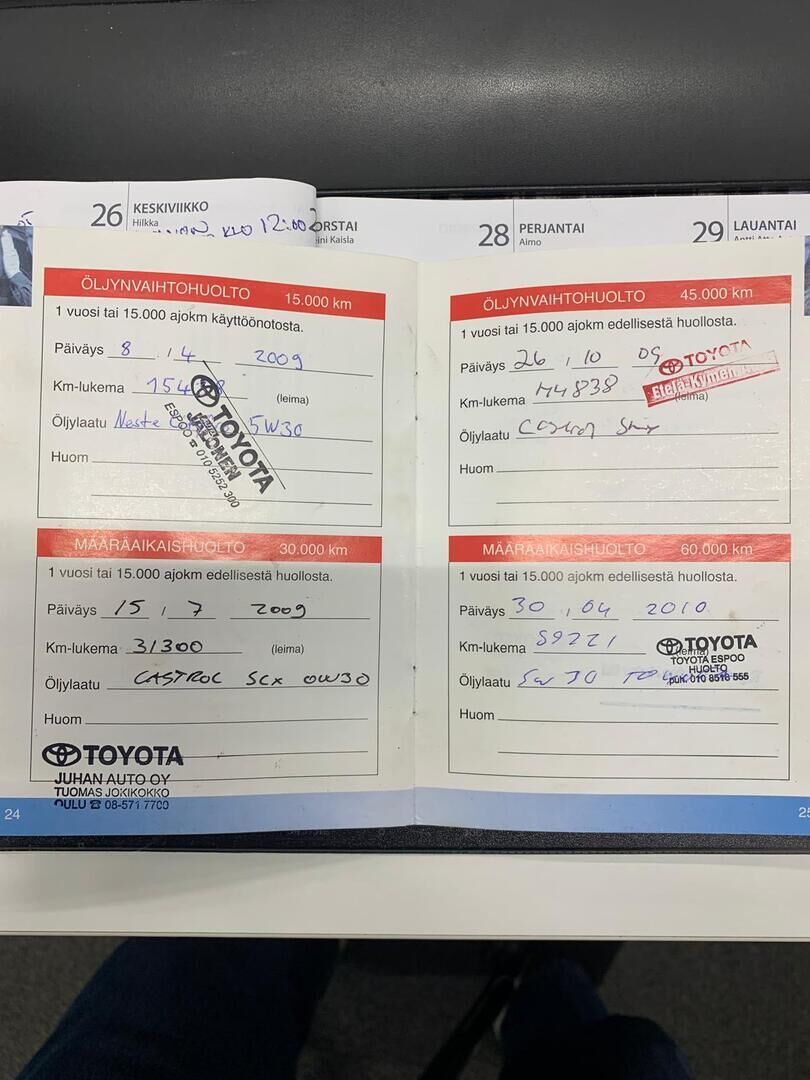 26 KESKIVIIKKO
Hilkka
KLO 12:00
ORSTAI
ini Kaisla
28 PERJANTAI
Aimo
29 LAUANTAI
ÖLJYNVAIHTOHUOLTO 15.000 km
1 vuosi tai 15.000 ajokm käyttöönotosta.
Päiväys 8 . 4 2009
Km-lukema
(leima)
Öljylaatu Neste 5W30
Huom
TOYOTA
JALONEN
ESPOO ☎ 010 5252 300
MÄÄRÄAIKAISHUOLTO 30.000 km
1 vuosi tai 15.000 ajokm edellisestä huollosta.
Päiväys 15 . 7 2009
Km-lukema 31300 (leima)
Öljylaatu CASTROL SLX 0W30
Huom
TOYOTA
JUHAN AUTO OY
TUOMAS JOKIKOKKO
OULU ☎ 08-571 7700
24
ÖLJYNVAIHTOHUOLTO 45.000 km
1 vuosi tai 15.000 ajokm edellisestä huollosta.
Päiväys 26 . 10 09
TOYOTA
Etelä-Kymen
Km-lukema 44838 (leima)
Öljylaatu Castrol
Huom
MÄÄRÄAIKAISHUOLTO 60.000 km
1 vuosi tai 15.000 ajokm edellisestä huollosta.
Päiväys 30 . 04 2010
Km-lukema 59221 (leima)
TOYOTA
TOYOTA ESPOO
HUOLTO
puh. 010 8518 555
Öljylaatu 5W30
Huom